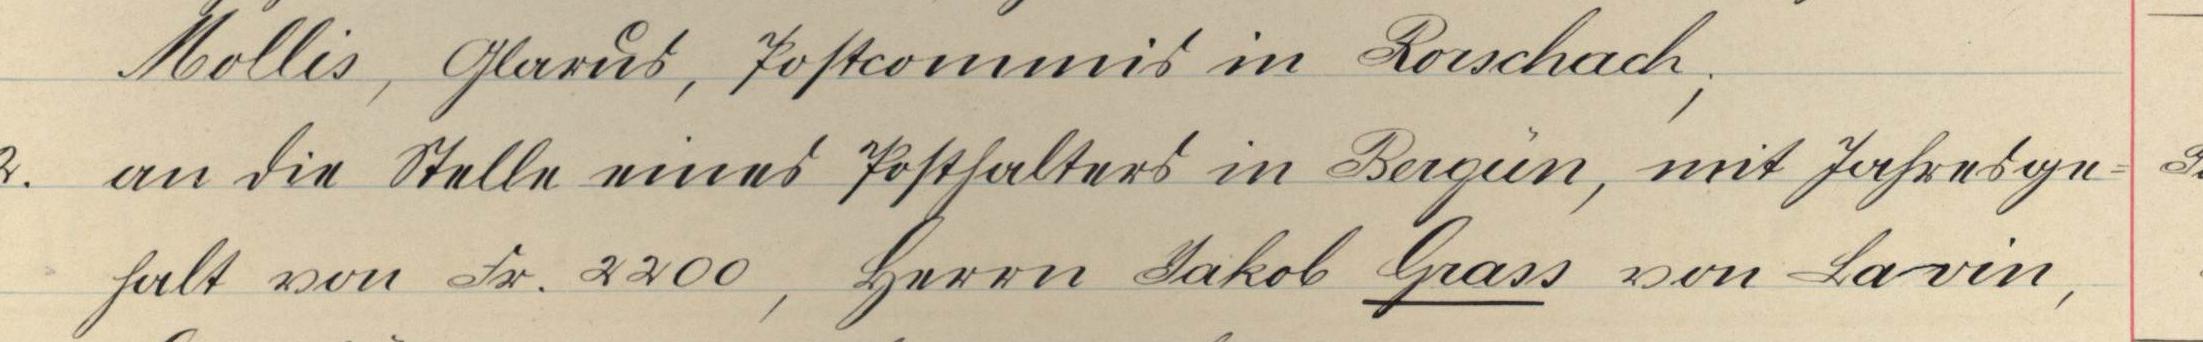 Mollis, Glarus, Postcommis in Rorschach;
2. an die Stelle eines Posthalters in Bergün, mit Jahresge=
halt von Fr. 2200, Herrn Jakob Grass von Lavin,